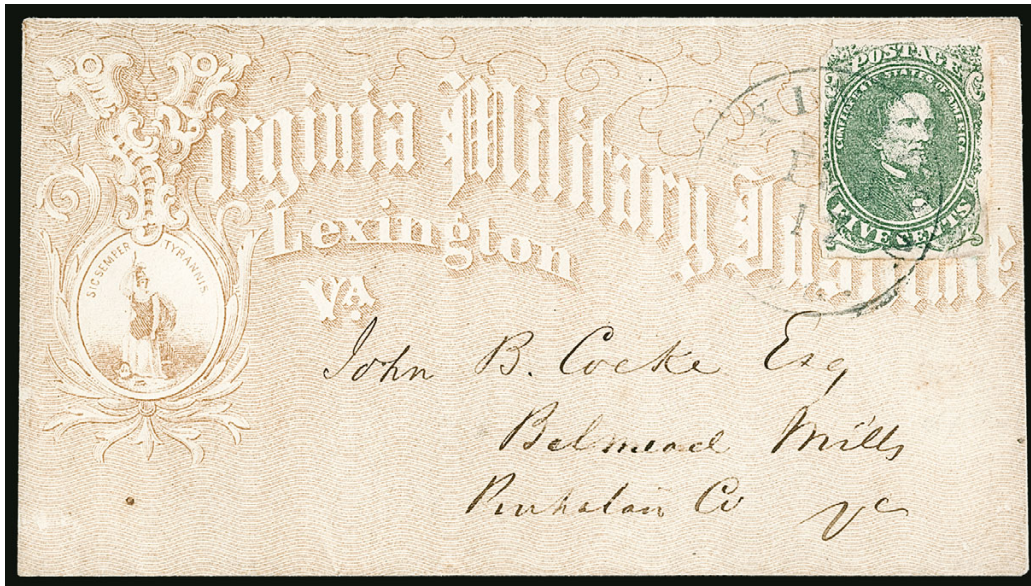 Virginia Military Institute
Lexington
VA
SIC SEMPER TYRANNIS
POSTAGE
CONFEDERATE STATES OF AMERICA
FIVE CENTS
XI
1
John B. Cocke Esq
Belmead Mills
Powhatan Co Va